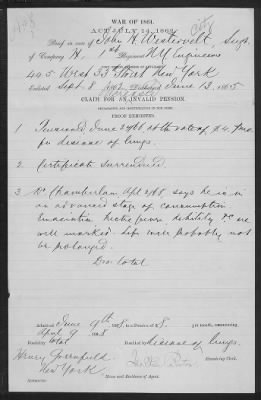 WAR OF 1861.
ACT JULY 14, 1862.
Brief in case of John H. Westervelt, Sergt.
of Company H, 1st Regiment N Y Engineers
445 West 33 Street New York
Enlisted Sept. 8 1862 Discharged June 13. 1865
CLAIM FOR AN INVALID PENSION.
PROOF EXHIBITED
1 Pensioned June 24/68 at the rate of $
for disease of lungs.
2 Certificate Surrendered.
3 Dr Chamberlan Apl 9/68 says he is in
an advanced stage of consumption
Emaciation hectic fever debility &c are
well marked. Life will probably not
be prolonged.
Dis. total
Admitted June 9th 1868, to a Pension of $8. per month, commencing
April 9 1868
Disability total disease of lungs.
Henry
New York
Examining Clerk.
Name and Residence of Agent.